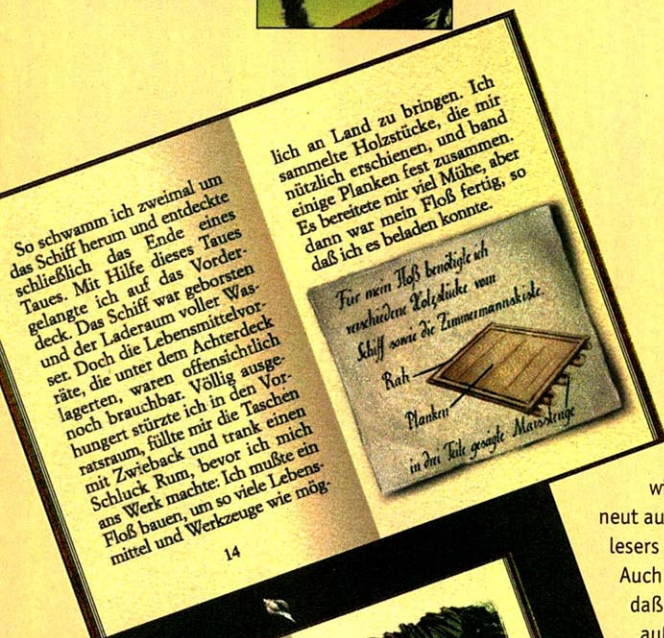 So schwamm ich zweimal um
das Schiff herum und entdeckte
schließlich das Ende eines
Taues. Mit Hilfe dieses Taues
gelangte ich auf das Vorder-
deck. Das Schiff war geborsten
und der Laderaum voller Was-
ser. Doch die Lebensmittelvor-
räte, die unter dem Achterdeck
lagerten, waren offensichtlich
noch brauchbar. Völlig ausge-
hungert stürzte ich in den Vor-
ratsraum, füllte mir die Taschen
mit Zwieback und trank einen
Schluck Rum, bevor ich mich
ans Werk machte: Ich mußte ein
Floß bauen, um so viele Lebens-
mittel und Werkzeuge wie mög-
14
lich an Land zu bringen. Ich
sammelte Holzstücke, die mir
nützlich erschienen, und band
einige Planken fest zusammen.
Es bereitete mir viel Mühe, aber
dann war mein Floß fertig, so
daß ich es beladen konnte.
Für mein Floß benötigte ich
verschiedene Holzstücke vom
Schiff sowie die Zimmermannskiste.
Rah
Planken
in drei Teile gesägte Marsstenge
neut au
lesers
Auch
daß